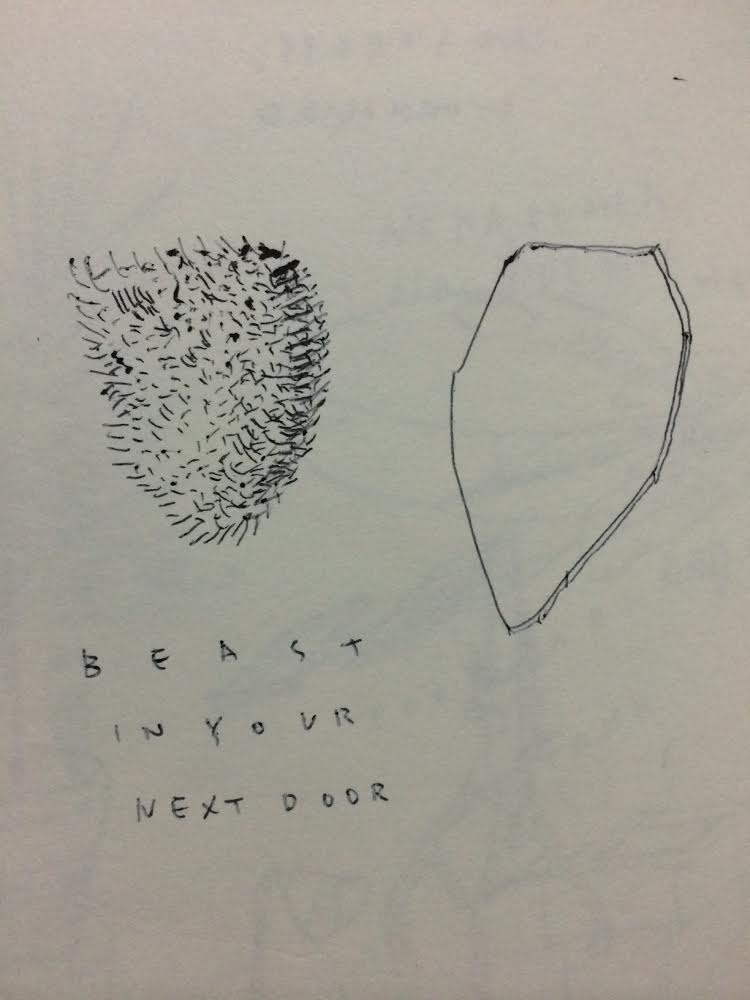 BEAST
IN YOUR
NEXT DOOR